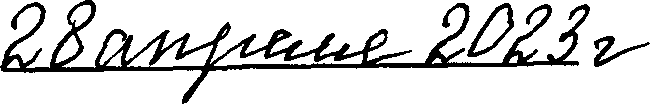 28 апреля 2023 г